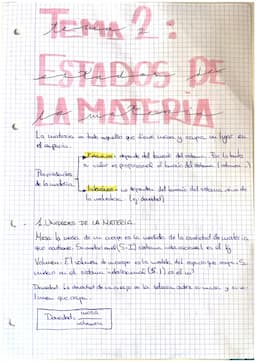 TEMA 2:
ESTADOS DE
LA MATERIA
La materia es todo aquello que tiene masa y ocupa un lugar en
el espacio.
Extensivas: depende del tamaño del sistema. Por lo tanto
su valor es proporcional al tamaño del sistema (volumen)
Propiedades
de la materia
Intensivas: no depende del tamaño del sistema sino de
la naturaleza (ej. densidad)
1. UNIDADES DE LA MATERIA
Masa: la masa de un cuerpo es la medida de la cantidad de materia
que contiene. Su unidad en el (S.I) sistema internacional es el kg
Volumen: El volumen de un cuerpo es la medida del espacio que ocupa. Su
unidad en el sistema internacional (S.I) es el m³
Densidad: La densidad de un cuerpo es la relación entre su masa y su vo-
lumen que ocupa.
Densidad: masa
volumen